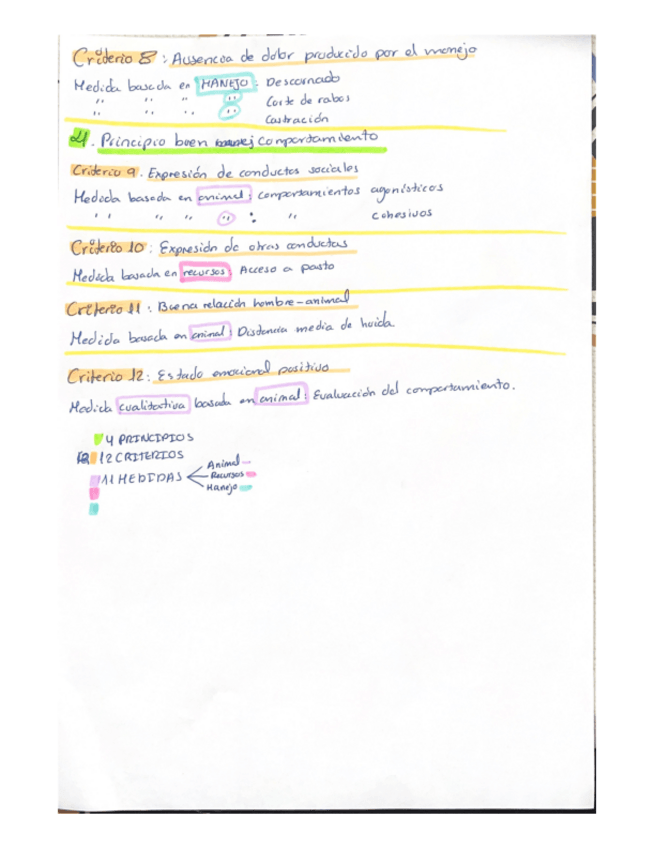 Criterio 8: Ausencia de dolor producido por el manejo
Medida basada en MANEJO: Descornado
" " " " Corte de rabos
" " " " Castración
4. Principio buen comportamiento
Criterio 9. Expresión de conductas sociales
Medida basada en animal: comportamientos agonísticos
" " " " : " cohesivos
Criterio 10: Expresión de otras conductas
Medida basada en recursos: Acceso a pasto
Criterio 11: Buena relación hombre-animal
Medida basada en animal: Distancia media de huida
Criterio 12: Estado emocional positivo
Medida cualitativa basada en animal: Evaluación del comportamiento.
4 PRINCIPIOS
12 CRITERIOS
11 MEDIDAS
Animal
Recursos
Manejo